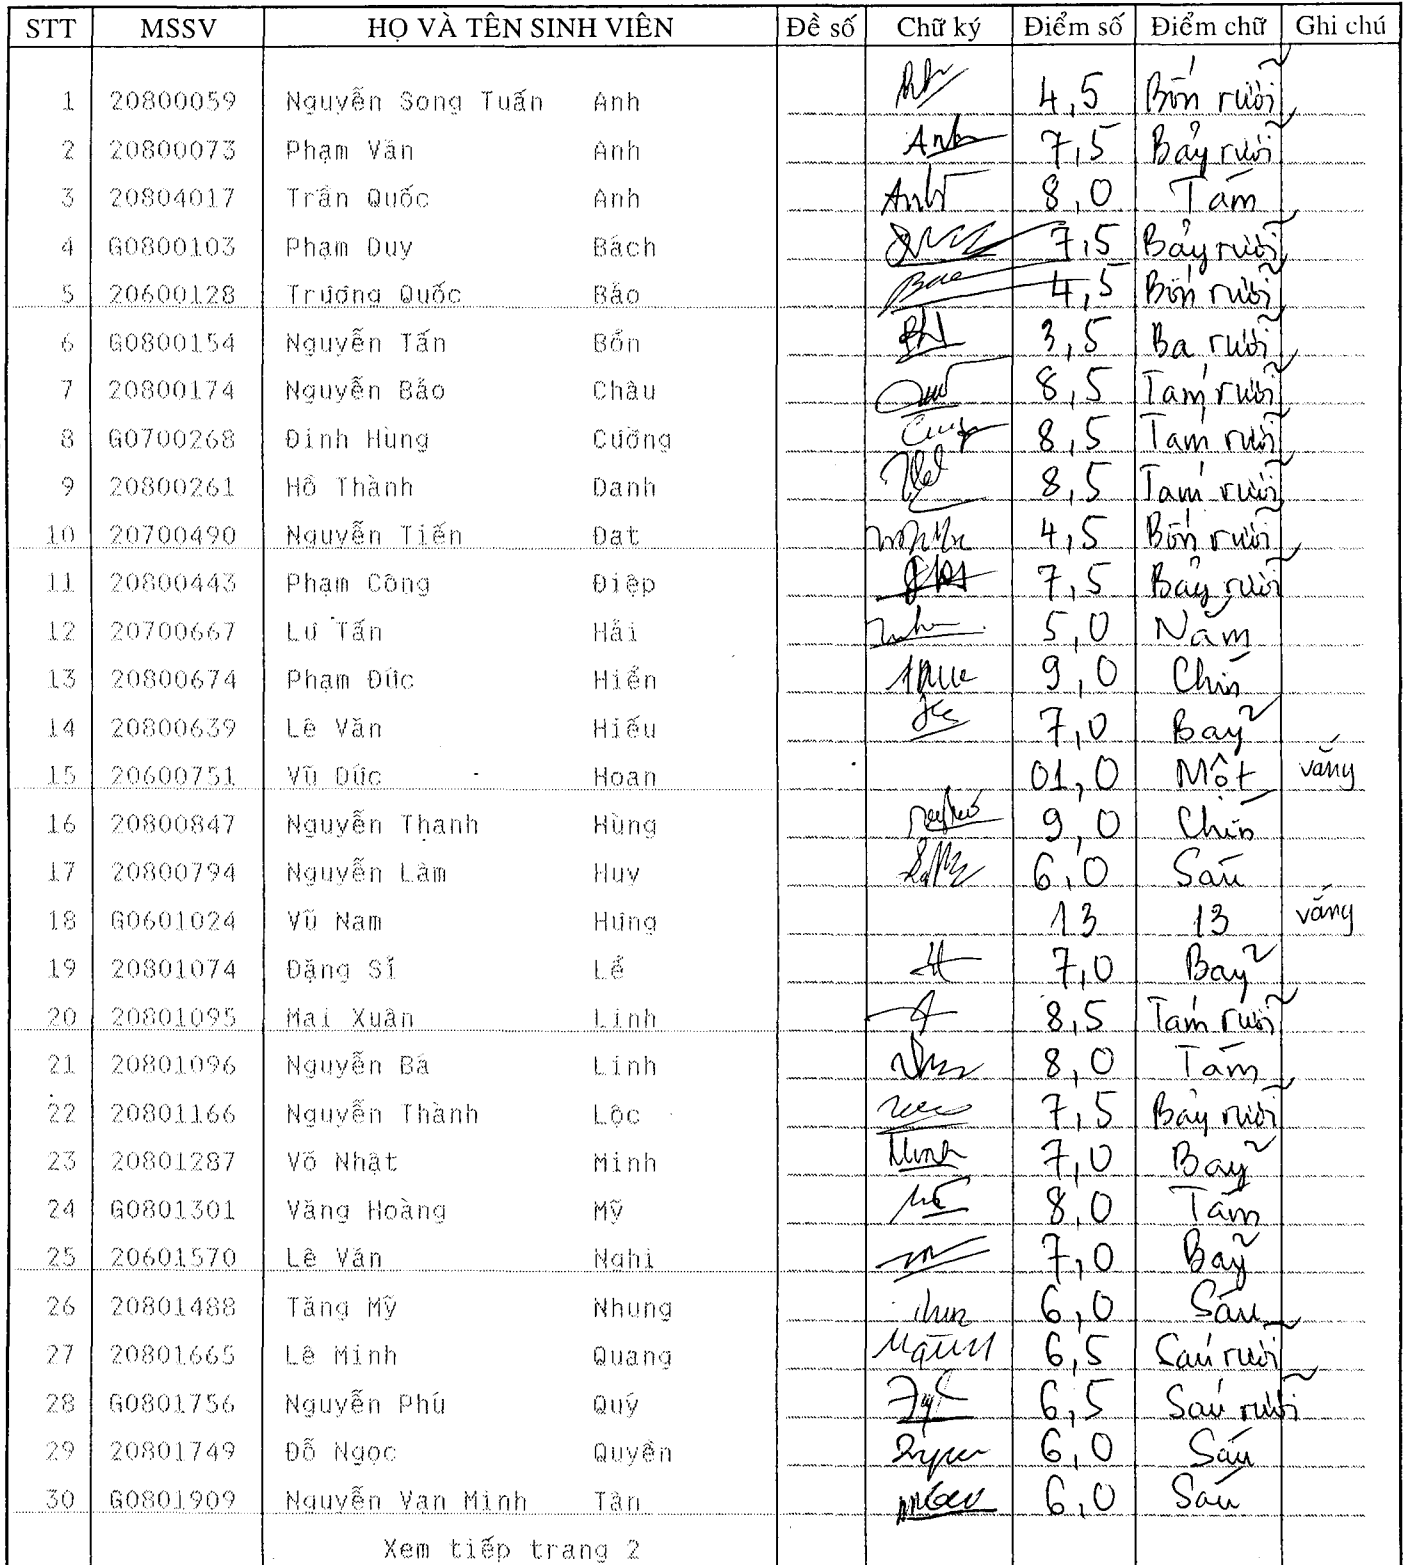 STT MSSV HỌ VÀ TÊN SINH VIÊN Đề số Chữ ký Điểm số Điểm chữ Ghi chú
1 20800059 Nguyễn Song Tuấn Anh 4,5 Bốn rưỡi
2 20800073 Phạm Văn Anh Anh 7,5 Bảy rưỡi
3 20804017 Trần Quốc Anh Anh 8,0 Tám
4 G0800103 Phạm Duy Bách 7,5 Bảy rưỡi
5 20600128 Trương Quốc Bảo 4,5 Bốn rưỡi
6 G0800154 Nguyễn Tấn Bổn 3,5 Ba rưỡi
7 20800174 Nguyễn Bảo Châu 8,5 Tám rưỡi
8 G0700268 Đinh Hùng Cường 8,5 Tám rưỡi
9 20800261 Hồ Thành Danh 8,5 Tám rưỡi
10 20700490 Nguyễn Tiến Đạt 4,5 Bốn rưỡi
11 20800443 Phạm Công Điệp 7,5 Bảy rưỡi
12 20700667 Lư Tấn Hải 5,0 Năm
13 20800674 Phạm Đức Hiển 9,0 Chín
14 20800639 Lê Văn Hiếu 7,0 Bảy
15 20600751 Vũ Đức Hoan 01,0 Một vắng
16 20800847 Nguyễn Thanh Hùng 9,0 Chín
17 20800794 Nguyễn Lâm Huy 6,0 Sáu
18 G0601024 Vũ Nam Hưng 13 13 vắng
19 20801074 Đặng Sĩ Lể 7,0 Bảy
20 20801095 Mai Xuân Linh 8,5 Tám rưỡi
21 20801096 Nguyễn Bá Linh 8,0 Tám
22 20801166 Nguyễn Thành Lộc 7,5 Bảy rưỡi
23 20801287 Võ Nhật Minh Minh 7,0 Bảy
24 G0801301 Văng Hoàng Mỹ 8,0 Tám
25 20601570 Lê Văn Nghi 7,0 Bảy
26 20801488 Tăng Mỹ Nhung 6,0 Sáu
27 20801665 Lê Minh Quang 6,5 Sáu rưỡi
28 G0801756 Nguyễn Phú Quý 6,5 Sáu rưỡi
29 20801749 Đỗ Ngọc Quyên 6,0 Sáu
30 G0801909 Nguyễn Vạn Minh Tân 6,0 Sáu
Xem tiếp trang 2